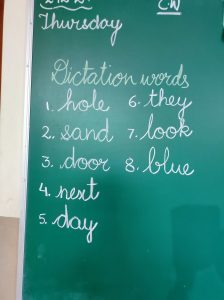 C.W
Thursday
Dictation words
1. hole 6. they
2. sand 7. look
3. door 8. blue
4. next
5. day